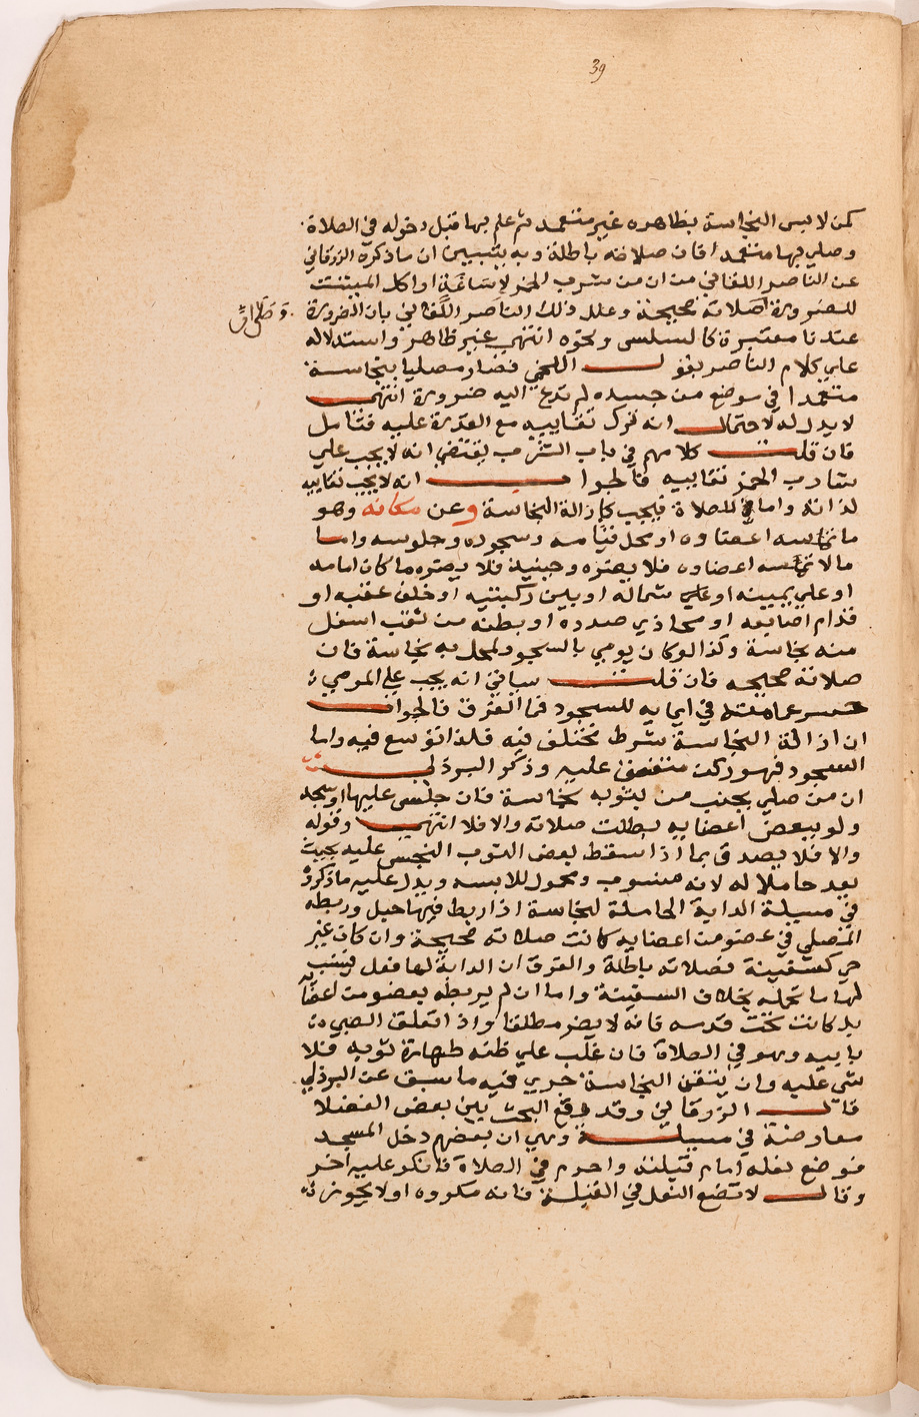 39
كمن لابس النجاسة بظاهره غير متعمد ثم علم بها قبل دخوله في الصلاة
وصلي بها متعمدا فان صلاته باطلة وبه يتبين ان ما ذكره الزرقاني
عن الناصر اللقاني من ان من شرب الخمر لاساغة او اكل الميتة
للضرورة صلاته صحيحة وعلل ذلك الناصر اللقاني بان الضرورة
عندنا معتبرة كالسلس ونحوه انتهي غير ظاهر واستدلاله
علي كلام الناصر بقول اللخمي فصار مصليا بنجاسة
متعمدا في موضع من جسده لم تدع اليه ضرورة انتهي
لا يدل له لاحتمال انه ترك تقاييه مع القدرة عليه فتامل
فان قلت كلامهم في باب الشرب يقتضي انه لا يجب علي
شارب الخمر تقاييه فالجواب انه لا يجب تقاييه
لذاته واما للصلاة فيجب كازالة النجاسة وعن مكانه وهو
ما تماسه اعضاوه او محل قيامه وسجوده وجلوسه واما
ما لا تماسه اعضاوه فلا يضره وحينيذ فلا يضره ما كان امامه
او علي يمينه او علي شماله او بين ركبتيه او خلف عقبه او
قدام اصابعه او محاذي صدره او بطنه من ثقب اسفل
منه نجاسة وكذا لو كان يومي بالسجود لمحل به نجاسة فان
صلاته صحيحه فان قلت سياتي انه يجب علي المومي
حسر عمامته في ايمايه للسجود فما الفرق فالجواب
ان ازالة النجاسة شرط مختلف فيه فلذا توسع فيه واما
السجود فهو ركن متفق عليه وذكر البرذلي
ان من صلي بجنب من بثوبه نجاسة فان جلس عليها او سجد
ولو ببعض اعضايه بطلت صلاته والا فلا انتهي وقوله
والا فلا يصدق بما اذا سقط بعض الثوب النجس عليه بحيث
يعد حاملا له لانه منسوب ومحول للابسه ويدل عليه ما ذكروه
في مسيلة الداية الحاملة لنجاسة اذا ربط فيها حبل وربطه
المصلي في عضو من اعضايه كانت صلاته صحيحة وان كان غير
حي كسفينة فصلاته باطلة والفرق ان الدابة لها فعل ينسب
لها ما تحمله بخلاف السفينة واما ان لم يربطه بعضو من اعضايه
بل كانت تحت قدمه فانه لا يضر مطلقا واذا تعلق الصبي
بابيه وهو في الصلاة فان غلب علي ظنه طهارة ثوبه فلا
شي عليه وان يتقن النجاسة جري فيه ما سبق عن البرذلي
قال الزرقاني وقد وقع البحث بين بعض الفضلا
معارضة في مسيلة وهي ان بعضهم دخل المسجد
فوضع نعله امام قبلته واحرم في الصلاة فانكر عليه اخر
وقال لا تضع النعل في القبلة فانه مكروه او لا يجوز